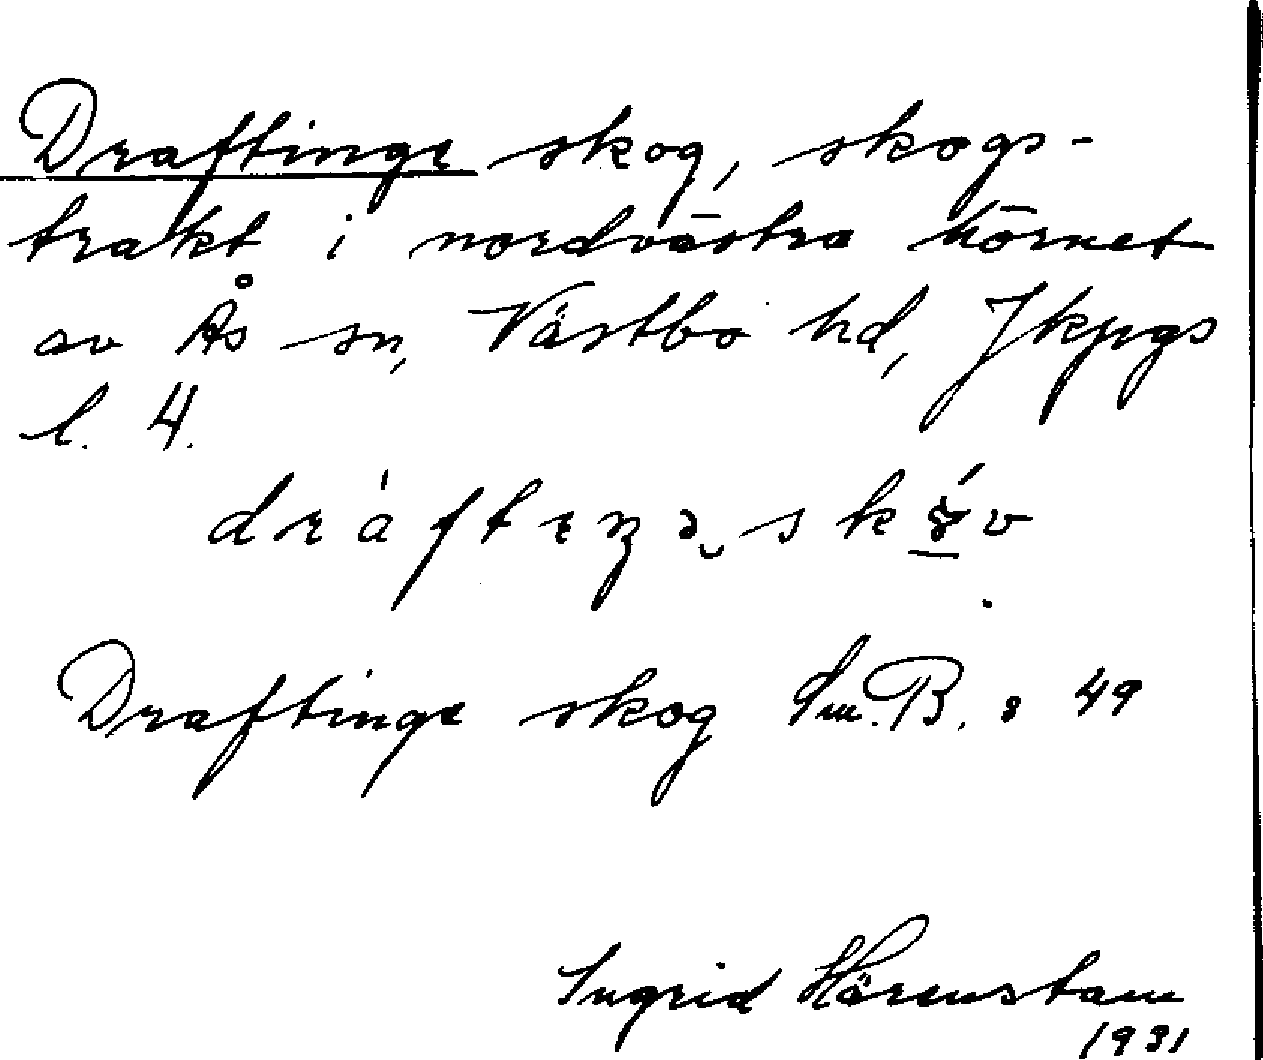 Draftinge skog, skogs-
trakt i nordvästra hörnet
av Ås sn, Västbo hd, Jkpgs
l. 4.
Draftinge skog Sm.B. : 49
Ingrid Härenstam
1931